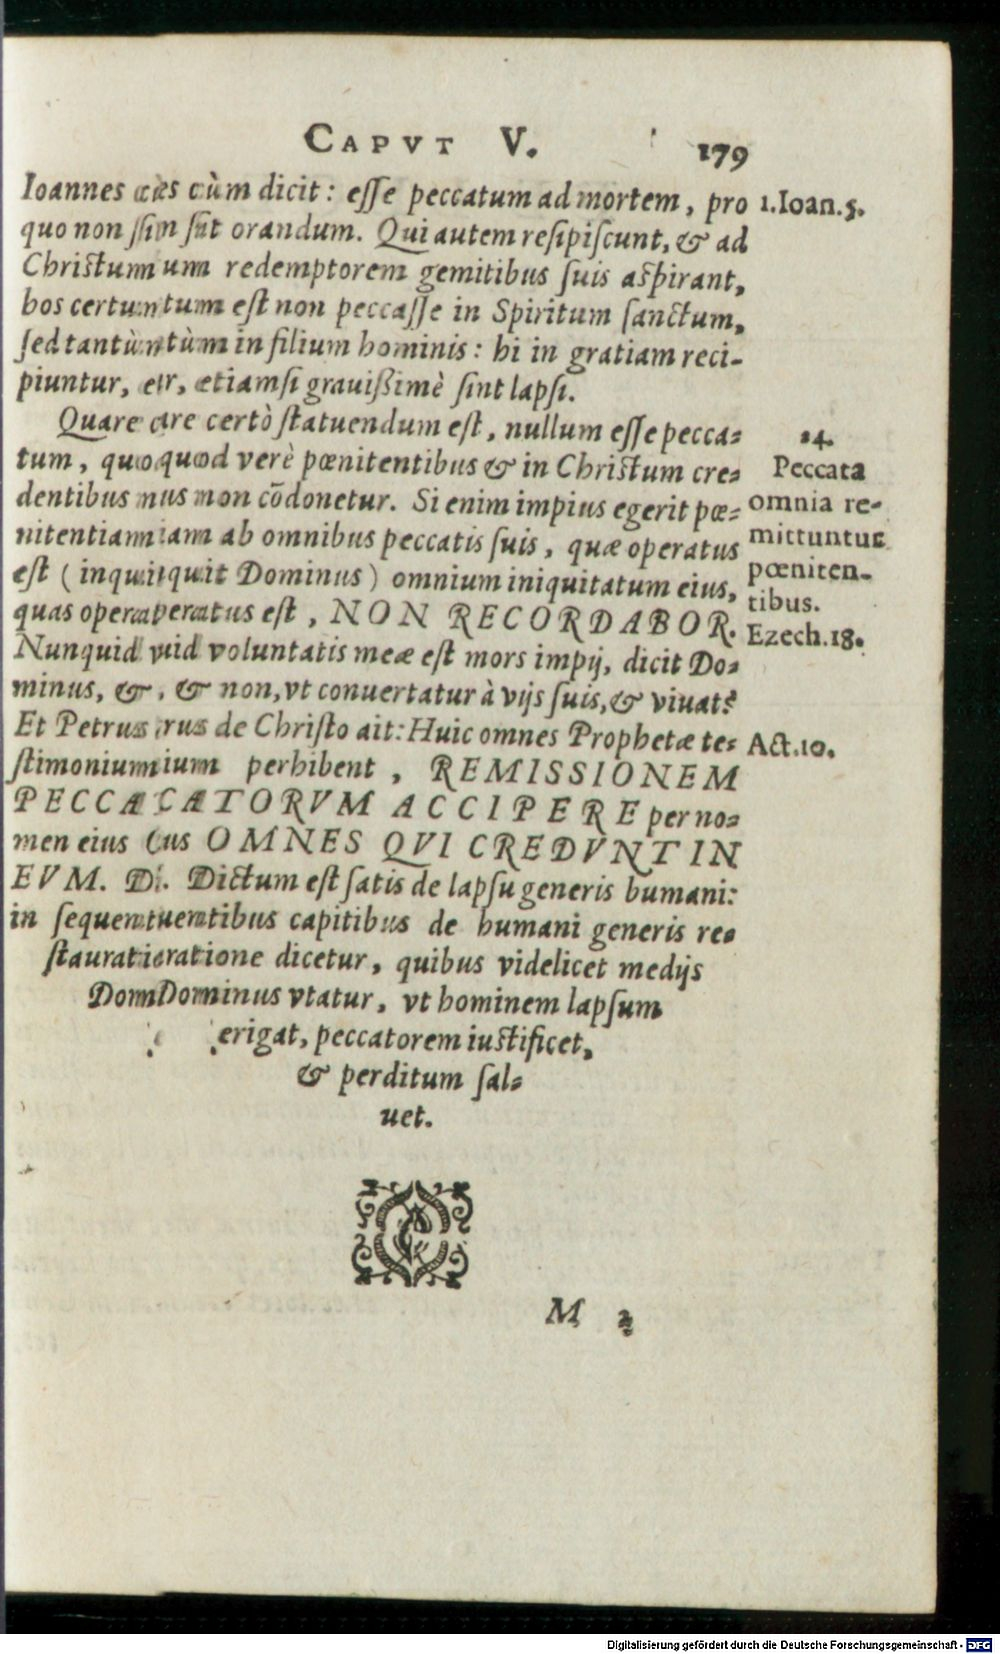 CAPVT V. 179
Ioannes cùm dicit: esse peccatum ad mortem, pro
1.Ioan.5.
quo non sit orandum. Qui autem resipiscunt, & ad
Christum redemptorem gemitibus suis aspirant,
hos certum est non peccasse in Spiritum sanctum,
sed tantùm in filium hominis: hi in gratiam reci-
piuntur, etiamsi grauißimè sint lapsi.
Quare certò statuendum est, nullum esse pecca-
tum, quod verè pœnitentibus & in Christum cre-
dentibus non cōdonetur. Si enim impius egerit pœ-
nitentiam ab omnibus peccatis suis, quæ operatus
est (inquit Dominus) omnium iniquitatum eius,
quas operatus est, NON RECORDABOR.
Nunquid voluntatis meæ est mors impij, dicit Do-
minus, & non, vt conuertatur à vijs suis, & viuat?
14.
Peccata
omnia re-
mittuntur
pœniten-
tibus.
Ezech.18.
Et Petrus de Christo ait: Huic omnes Prophetæ te-
Act.10.
stimonium perhibent, REMISSIONEM
PECCATORVM ACCIPERE per no-
men eius OMNES QVI CREDVNT IN
EVM. Dictum est satis de lapsu generis humani:
in sequentibus capitibus de humani generis re-
stauratione dicetur, quibus videlicet medijs
Dominus vtatur, vt hominem lapsum
erigat, peccatorem iustificet,
& perditum sal-
uet.
M 2
Digitalisierung gefördert durch die Deutsche Forschungsgemeinschaft - DFG